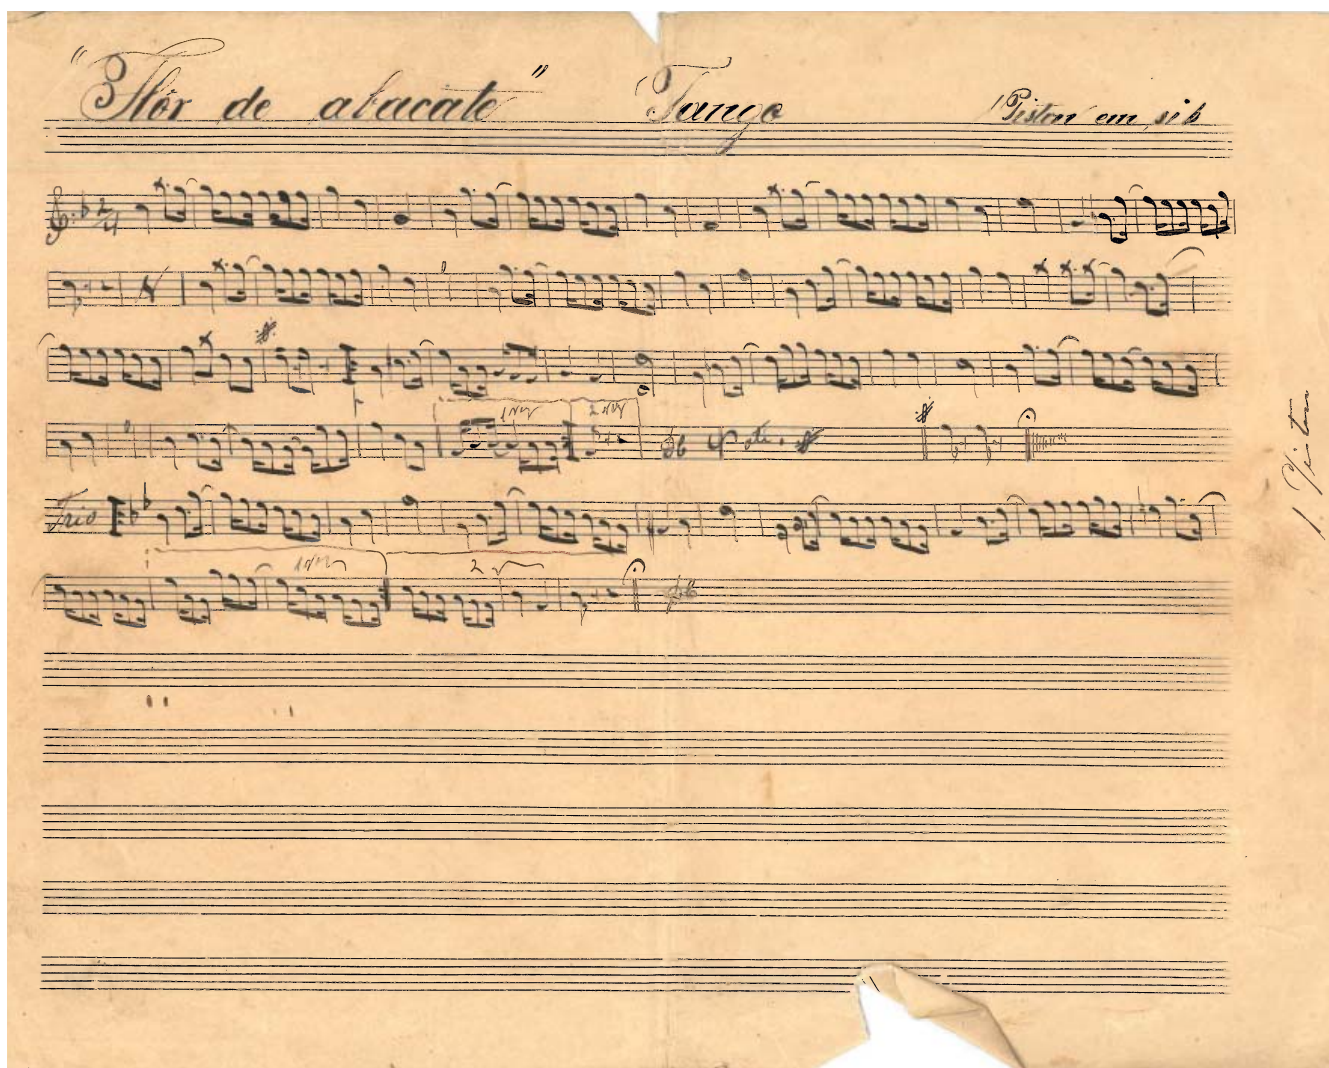 "Flôr de abacate" Tango Piston em si b
2/4
1 vez 2 vez
Trio
1 vez 2
1. Piston